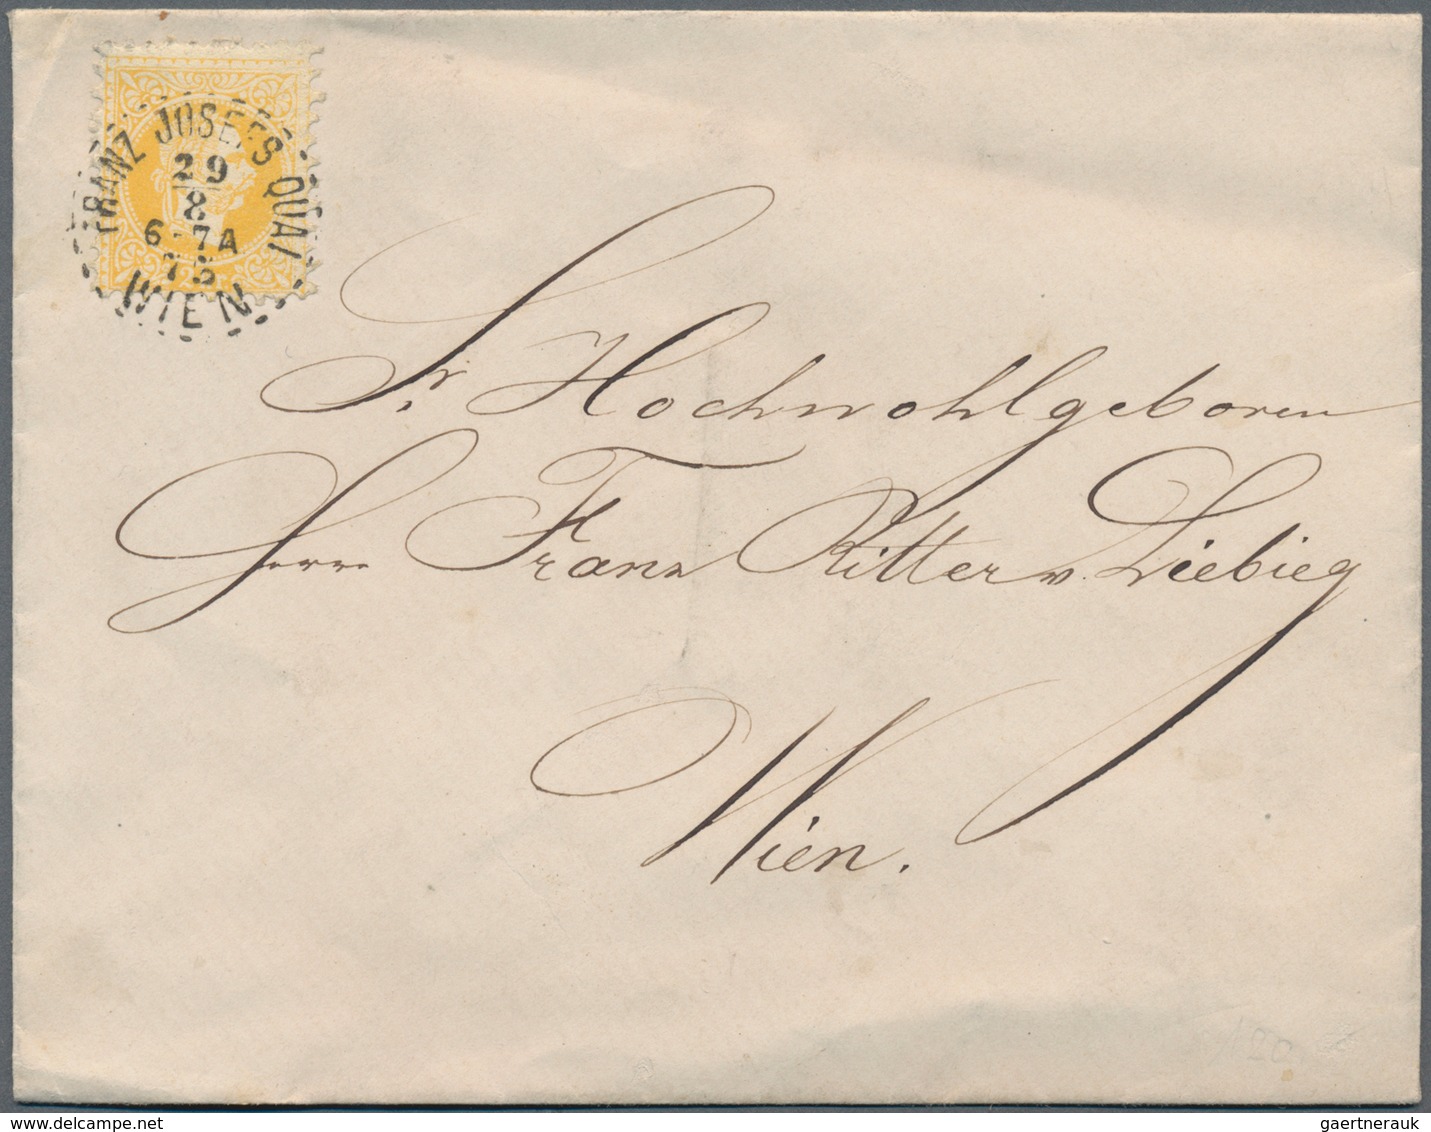 FRANZ JOSEFS QUAI
29
8
6-7A
75
WIEN
Sr. Hochwohlgeboren
Herrn Franz Ritter v. Liebieg
Wien.
120
gaertnerauk